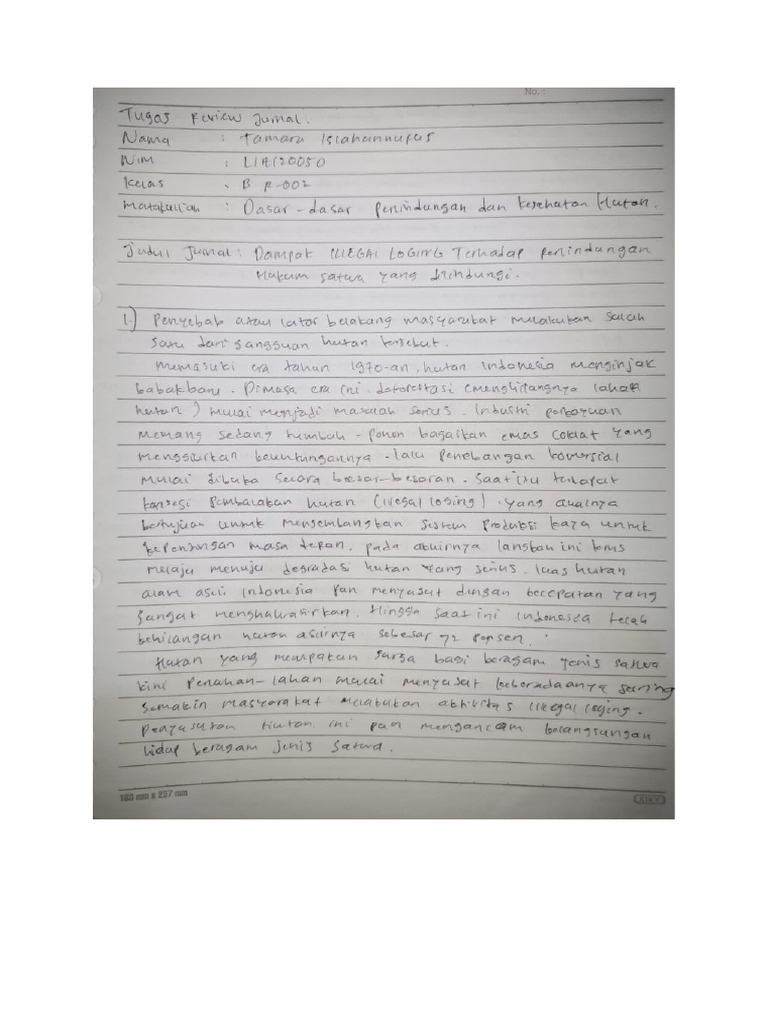 No. :
Tugas Review Jurnal.
Nama : Tamara Islahannufus
NIM : L1A120050
Kelas : B R-002
Matakuliah : Dasar-dasar Perlindungan dan Kesehatan Hutan.
Judul Jurnal : Dampak ILLEGAL LOGING Terhadap Perlindungan
Hukum satwa yang dilindungi.
1.) Penyebab atau latar belakang masyarakat melakukan salah
satu dari gangguan hutan tersebut.
Memasuki era tahun 1970-an, hutan Indonesia menginjak
babak baru. Dimasa era ini deforestasi (menghilangnya lahan
hutan) mulai menjadi masalah serius. Industri perkayuan
memang sedang tumbuh - pohon bagaikan emas coklat yang
menggiurkan keuntungannya - lalu penebangan komersial
mulai dibuka secara besar-besaran. Saat itu terdapat
konsesi pembalakan hutan (illegal loging) yang awalnya
bertujuan untuk mengembangkan sistem produksi kayu untuk
kepentingan masa depan. pada akhirnya langkah ini terus
melaju menuju degradasi hutan yang serius. luas hutan
alam asli Indonesia pan menyusut dengan kecepatan yang
sangat menghawatirkan. Hingga saat ini Indonesia telah
kehilangan hutan aslinya sebesar 72 Persen.
Hutan yang merupakan surga bagi beragam jenis satwa
kini Perlahan-lahan mulai menyusut keberadaanya seiring
semakin masyarakat melakukan aktivitas illegal loging.
penyusutan Hutan ini pun mengancam kelangsungan
hidup beragam jenis satwa.
180 mm x 257 mm
KIKY